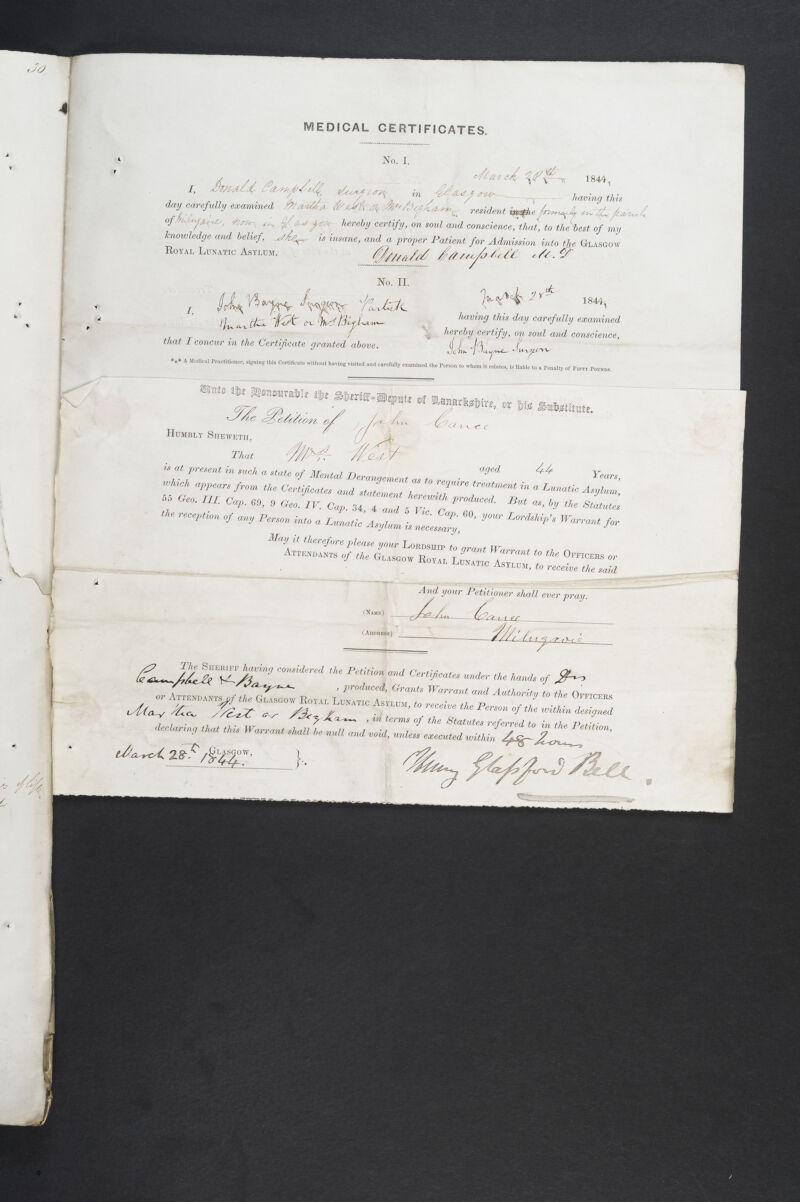 30
MEDICAL CERTIFICATES.
No. I.
March 28th 1844,
I, Donald Campbell, Surgeon in Glasgow having this
day carefully examined Martha West or Mrs Bigham resident in the formerly in the parish
of Milngavie, now in Glasgow hereby certify, on soul and conscience, that, to the best of my
knowledge and belief, she is insane, and a proper Patient for Admission into the GLASGOW
ROYAL LUNATIC ASYLUM. Donald Campbell M.D
No. II.
March 28th 1844,
I, John Bayne Surgeon Partick
having this day carefully examined
Martha West or Mrs Bigham
hereby certify, on soul and conscience,
that I concur in the Certificate granted above. John Bayne Surgeon
*** A Medical Practitioner, signing this Certificate without having visited and carefully examined the Person to whom it relates, is liable to a Penalty of FIFTY POUNDS.
Unto the Honourable the Sheriff-Depute of Lanarkshire, or his Substitute.
The Petition of John Cance
HUMBLY SHEWETH,
That Mrs. West aged 44 Years,
is at present in such a state of Mental Derangement as to require treatment in a Lunatic Asylum,
which appears from the Certificates and statement herewith produced. But as, by the Statutes
55 Geo. III. Cap. 69, 9 Geo. IV. Cap. 34, 4 and 5 Vic. Cap. 60, your Lordship's Warrant for
the reception of any Person into a Lunatic Asylum is necessary,
May it therefore please your LORDSHIP to grant Warrant to the OFFICERS or
ATTENDANTS of the GLASGOW ROYAL LUNATIC ASYLUM, to receive the said
And your Petitioner shall ever pray.
(NAME) John Cance
(ADDRESS) Milngavie
The SHERIFF having considered the Petition and Certificates under the hands of Drs
Campbell & Bayne, produced, Grants Warrant and Authority to the OFFICERS
or ATTENDANTS of the GLASGOW ROYAL LUNATIC ASYLUM, to receive the Person of the within designed
Martha West or Bigham, in terms of the Statutes referred to in the Petition,
declaring that this Warrant shall be null and void, unless executed within 48 hours
GLASGOW,
March 28th 1844. }
Henry Glassford Bell.